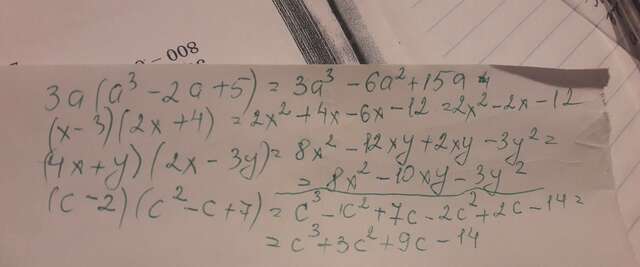 - 008
3a(a³ - 2a + 5) = 3a³ - 6a² + 15a
(x - 3)(2x + 4) = 2x² + 4x - 6x - 12 = 2x² - 2x - 12
(4x + y)(2x - 3y) = 8x² - 12xy + 2xy - 3y² =
= 8x² - 10xy - 3y²
(c - 2)(c² - c + 7) = c³ - c² + 7c - 2c² + 2c - 14 =
= c³ + 3c² + 9c - 14